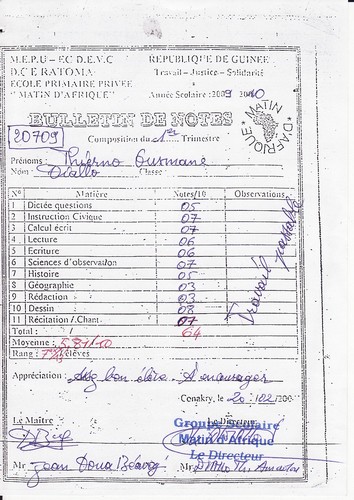 M.E.P.U – EC D.E.V.C REPUBLIQUE DE GUINEE
D.C E RATOMA Travail – Justice – Solidarité
ECOLE PRIMAIRE PRIVEE
"MATIN D'AFRIQUE" Année Scolaire : 2009 2010
MATIN D'AFRIQUE
BULLETIN DE NOTES
20709 Composition du 1er Trimestre
Prénoms : Thierno Ousmane
Nom : Diallo Classe
N° Matière Notes/10 Observations
1 Dictée questions 05
2 Instruction Civique 07
3 Calcul écrit 07
4 Lecture 06
5 Ecriture 06
6 Sciences d'observation 07
7 Histoire 05
8 Géographie 03
9 Rédaction 03
10 Dessin 08
11 Récitation / Chant 07
Travail passable
Total : 64
Moyenne : 5,81/10
Rang : élèves
Appréciation : Assez bon élève. A encourager
Conakry, le 20/02/200
Le Maître Le Directeur
Groupe Scolaire
Matin d'Afrique
Le Directeur
Mr Jean Mr